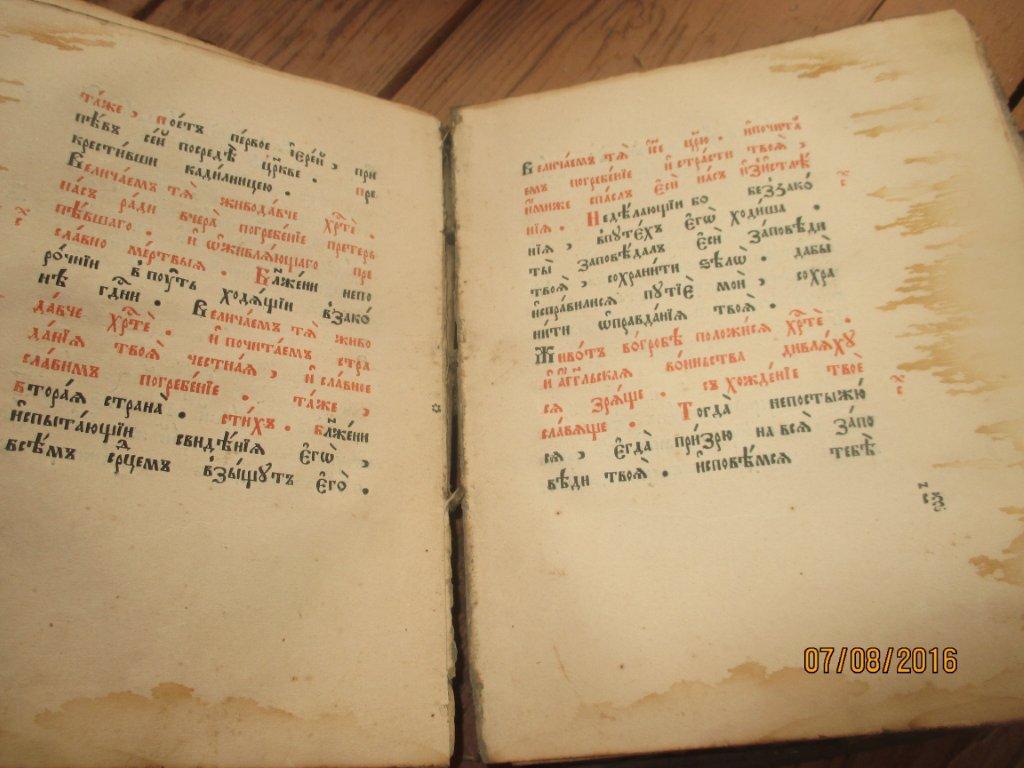 та́же , пое́тъ пе́рвое і҆ере́й , при
пѣ́въ се́й посредѣ̀ цр҃кве . пре
крести́вши кади́лницею .
Велича́емъ тѧ̀ живода́вче хрⷭ҇тѐ .
на́съ ра́ди вчера̀ погребе́нїе претерь
пѣ́вшаго . и҆ ѡ҆живлѧ́ющаго пре
сла́вно ме́ртвыѧ . Блаже́ни непо
ро́чнїи в̾пꙋ́ть ходѧ́щїи в̾зако́
нѣ гдⷭ҇ни . Велича́емъ тѧ̀ живо
да́вче хрⷭ҇тѐ . и҆ почита́емъ стра
да́нїѧ твоѧ̀ честна́ѧ , и҆ сла́вное
сла́вимъ погребе́нїе . та́же ,
вторая страна̀ . сти́хъ . бл҃же́ни
и҆спыта́ющїи свидѣ́нїѧ є҆гѡ̀ ,
всѣ́мъ срⷣцемъ в̾зы́щутъ є҆го̀ .
Велича́емъ тѧ̀ і҆с҃е цр҃ю . и҆почита́
емъ погребе́нїе и҆ стра́сти твоѧ̀ ,
и҆́миже спа́слъ є҆сѝ на́съ и҆з̾истлѣ́
нїѧ . Недѣ́лающїи бо беззако́
нїѧ , впꙋте́хъ є҆гѡ̀ ходи́ша .
ты̀ заповѣ́далъ є҆сѝ за́повѣди
твоѧ̀ , сохрани́ти ѕѣлѡ̀ . дабы̀
и҆спра́вилисѧ пꙋтїѐ моѝ , сохра
ни́ти ѡ҆правда́нїѧ твоѧ̀ .
Живо́тъ во́гробѣ положи́сѧ хрⷭ҇тѐ .
и҆ а҆́гг҃льская во́иньства дивлѧ́хꙋ
сѧ зрѧ́ще . съ хожде́нїе твоѐ
сла́вѧще . Тогда̀ непостыжю́
сѧ , є҆гда̀ при́зрю на всѧ̀ за́по
вѣди твоѧ̀ . и҆сповѣ́мсѧ тебѣ̀
07/08/2016